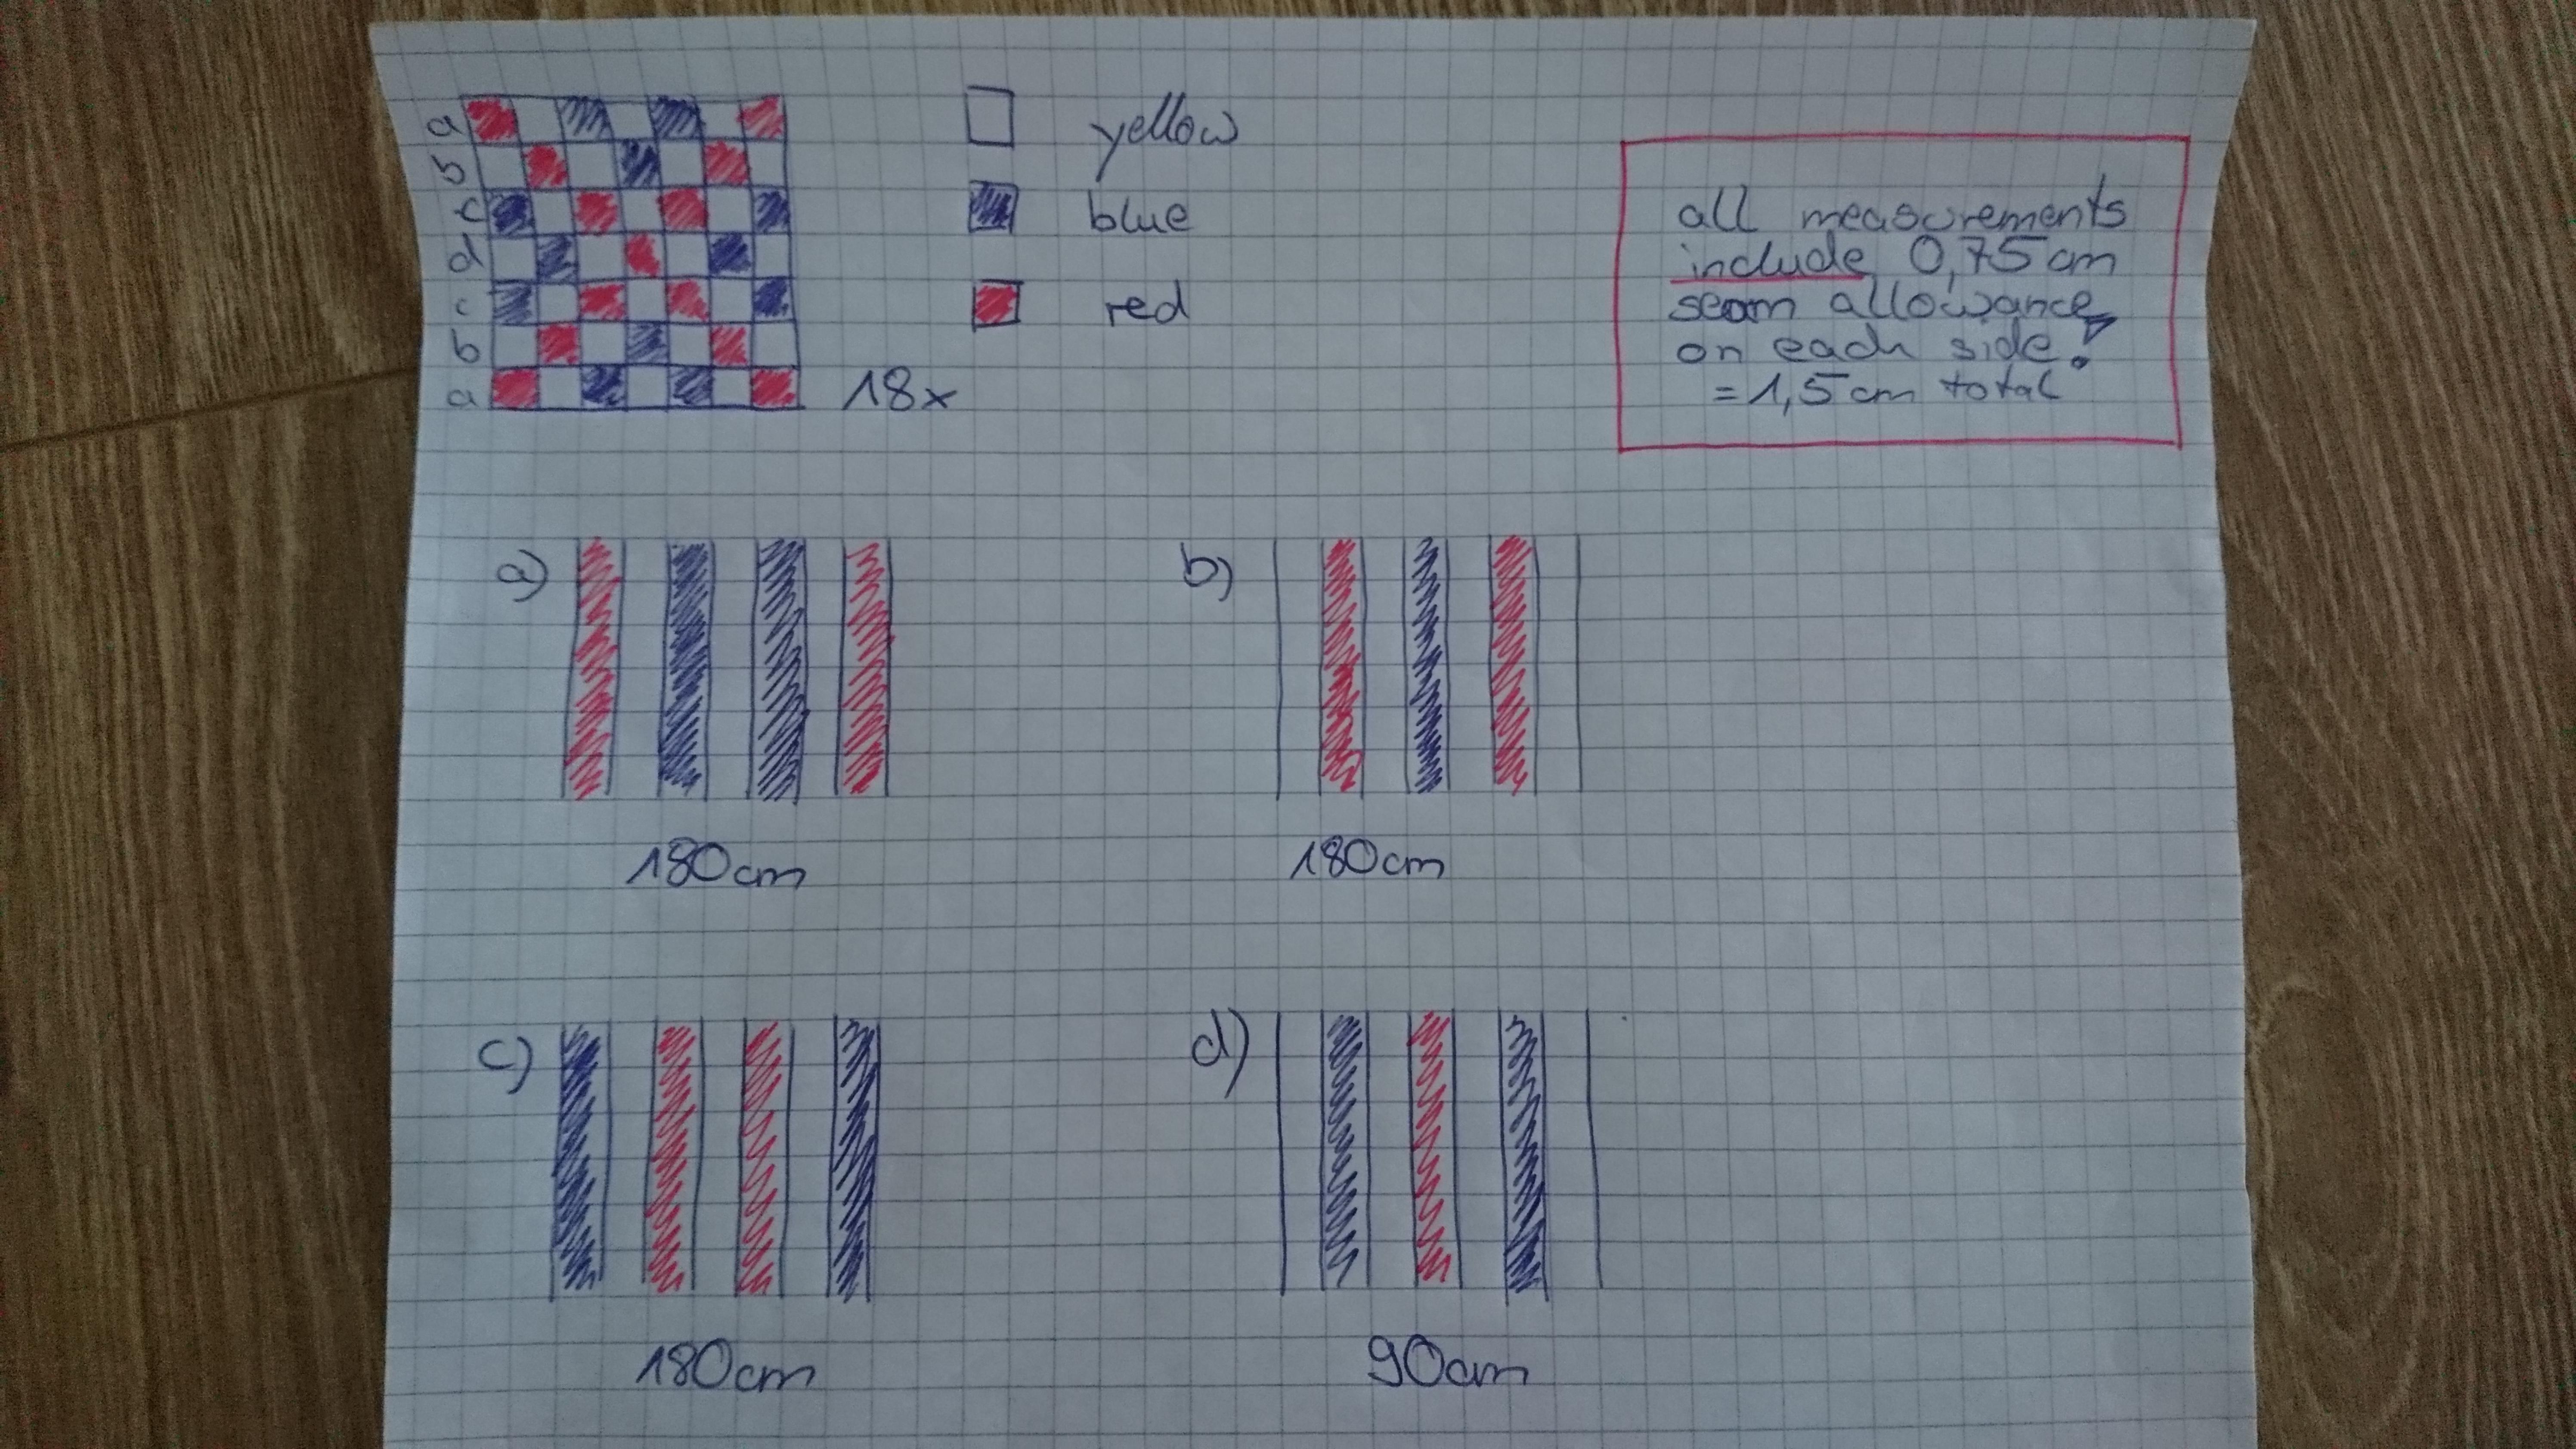 a
b
c
d
c
b
a
18x
yellow
blue
red
all measurements
include 0,75cm
seam allowance
on each side!
= 1,5cm total
a)
180cm
b)
180cm
c)
180cm
d)
90cm